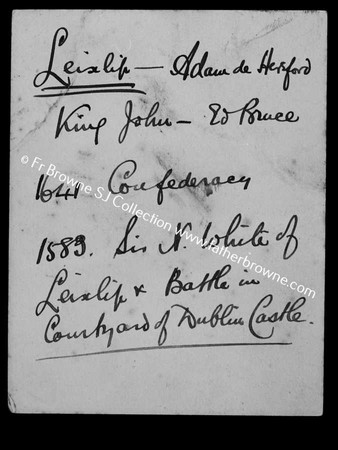 Leixlip — Adam de Hereford
King John — Ed Bruce
1641 Confederacy
1583. Sir N. White of
Leixlip & Battle in
Courtyard of Dublin Castle.
© Fr Browne SJ Collection www.fatherbrowne.com